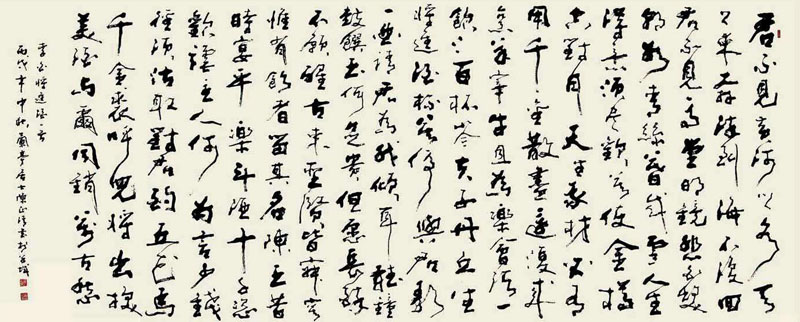 君不見黃河之水天
上來奔流到海不復回
君不見高堂明鏡悲白髮
朝如青絲暮成雪人生
得意須盡歡莫使金樽
空對月天生我材必有
用千金散盡還復來
烹羊宰牛且為樂會須一
飲三百杯岑夫子丹丘生
將進酒杯莫停與君歌
一曲請君為我傾耳聽鐘
鼓饌玉何足貴但願長醉
不願醒古來聖賢皆寂寞
惟有飲者留其名陳王昔
時宴平樂斗酒十千恣
歡謔主人何為言少錢
徑須沽取對君酌五花馬
千金裘呼兒將出換
美酒與爾同銷萬古愁
李白將進酒一首
丙戌年中秋蘭亭居士陳